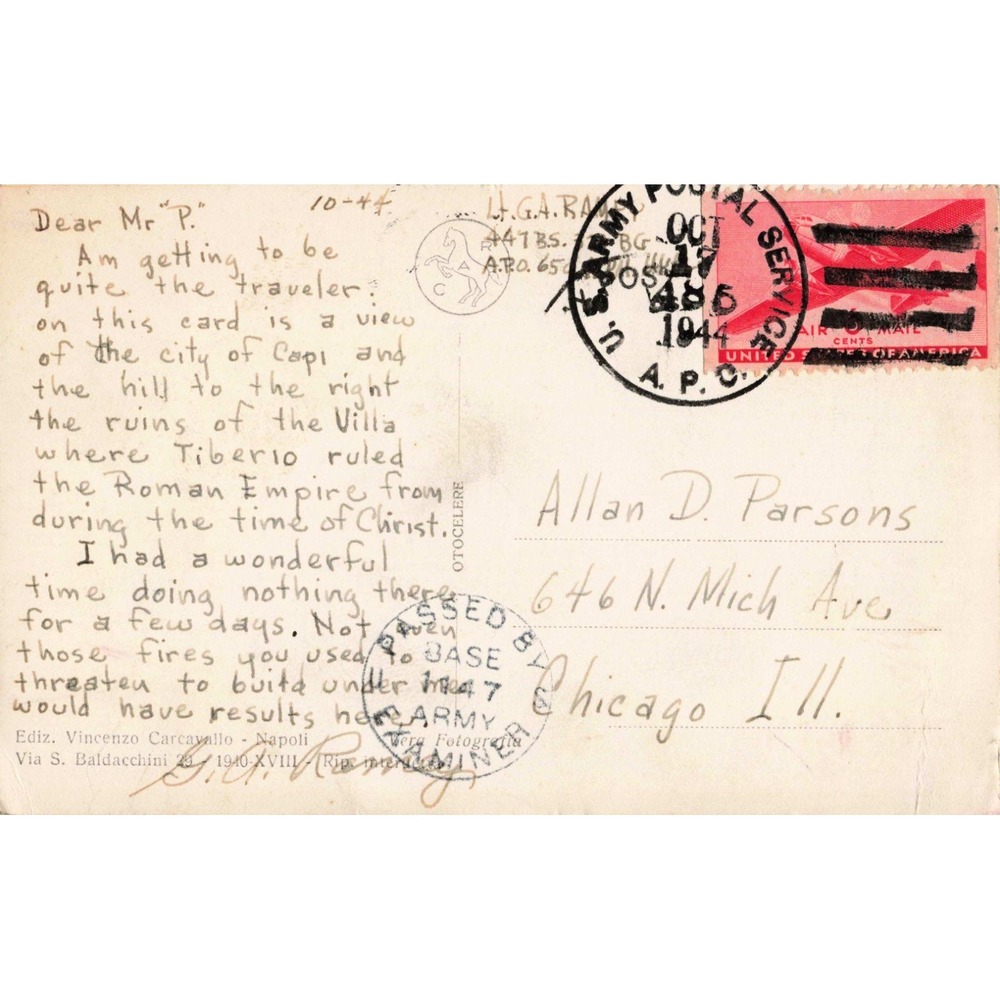 10-44
Dear Mr "P."
Am getting to be
quite the traveler.
on this card is a view
of the city of Capi and
the hill to the right
the ruins of the Villa
where Tiberio ruled
the Roman Empire from
during the time of Christ.
I had a wonderful
time doing nothing there
for a few days. Not even
those fires you used to
threaten to build under me
would have results here.
G.A. Ramey
Lt. G.A.
447 BS.
A.P.O. 650
C A R
U. S. ARMY POSTAL SERVICE
OCT
17
1944
A. P. O.
AIR 6 MAIL
CENTS
UNITED STATES OF AMERICA
Allan D. Parsons
646 N. Mich Ave
Chicago Ill.
OTOCELERE
PASSED BY
BASE
1147
ARMY
EXAMINER
Ediz. Vincenzo Carcavallo - Napoli
Vera Fotografia
Via S. Baldacchini 29 - 1940-XVIII - Rip. interdetta